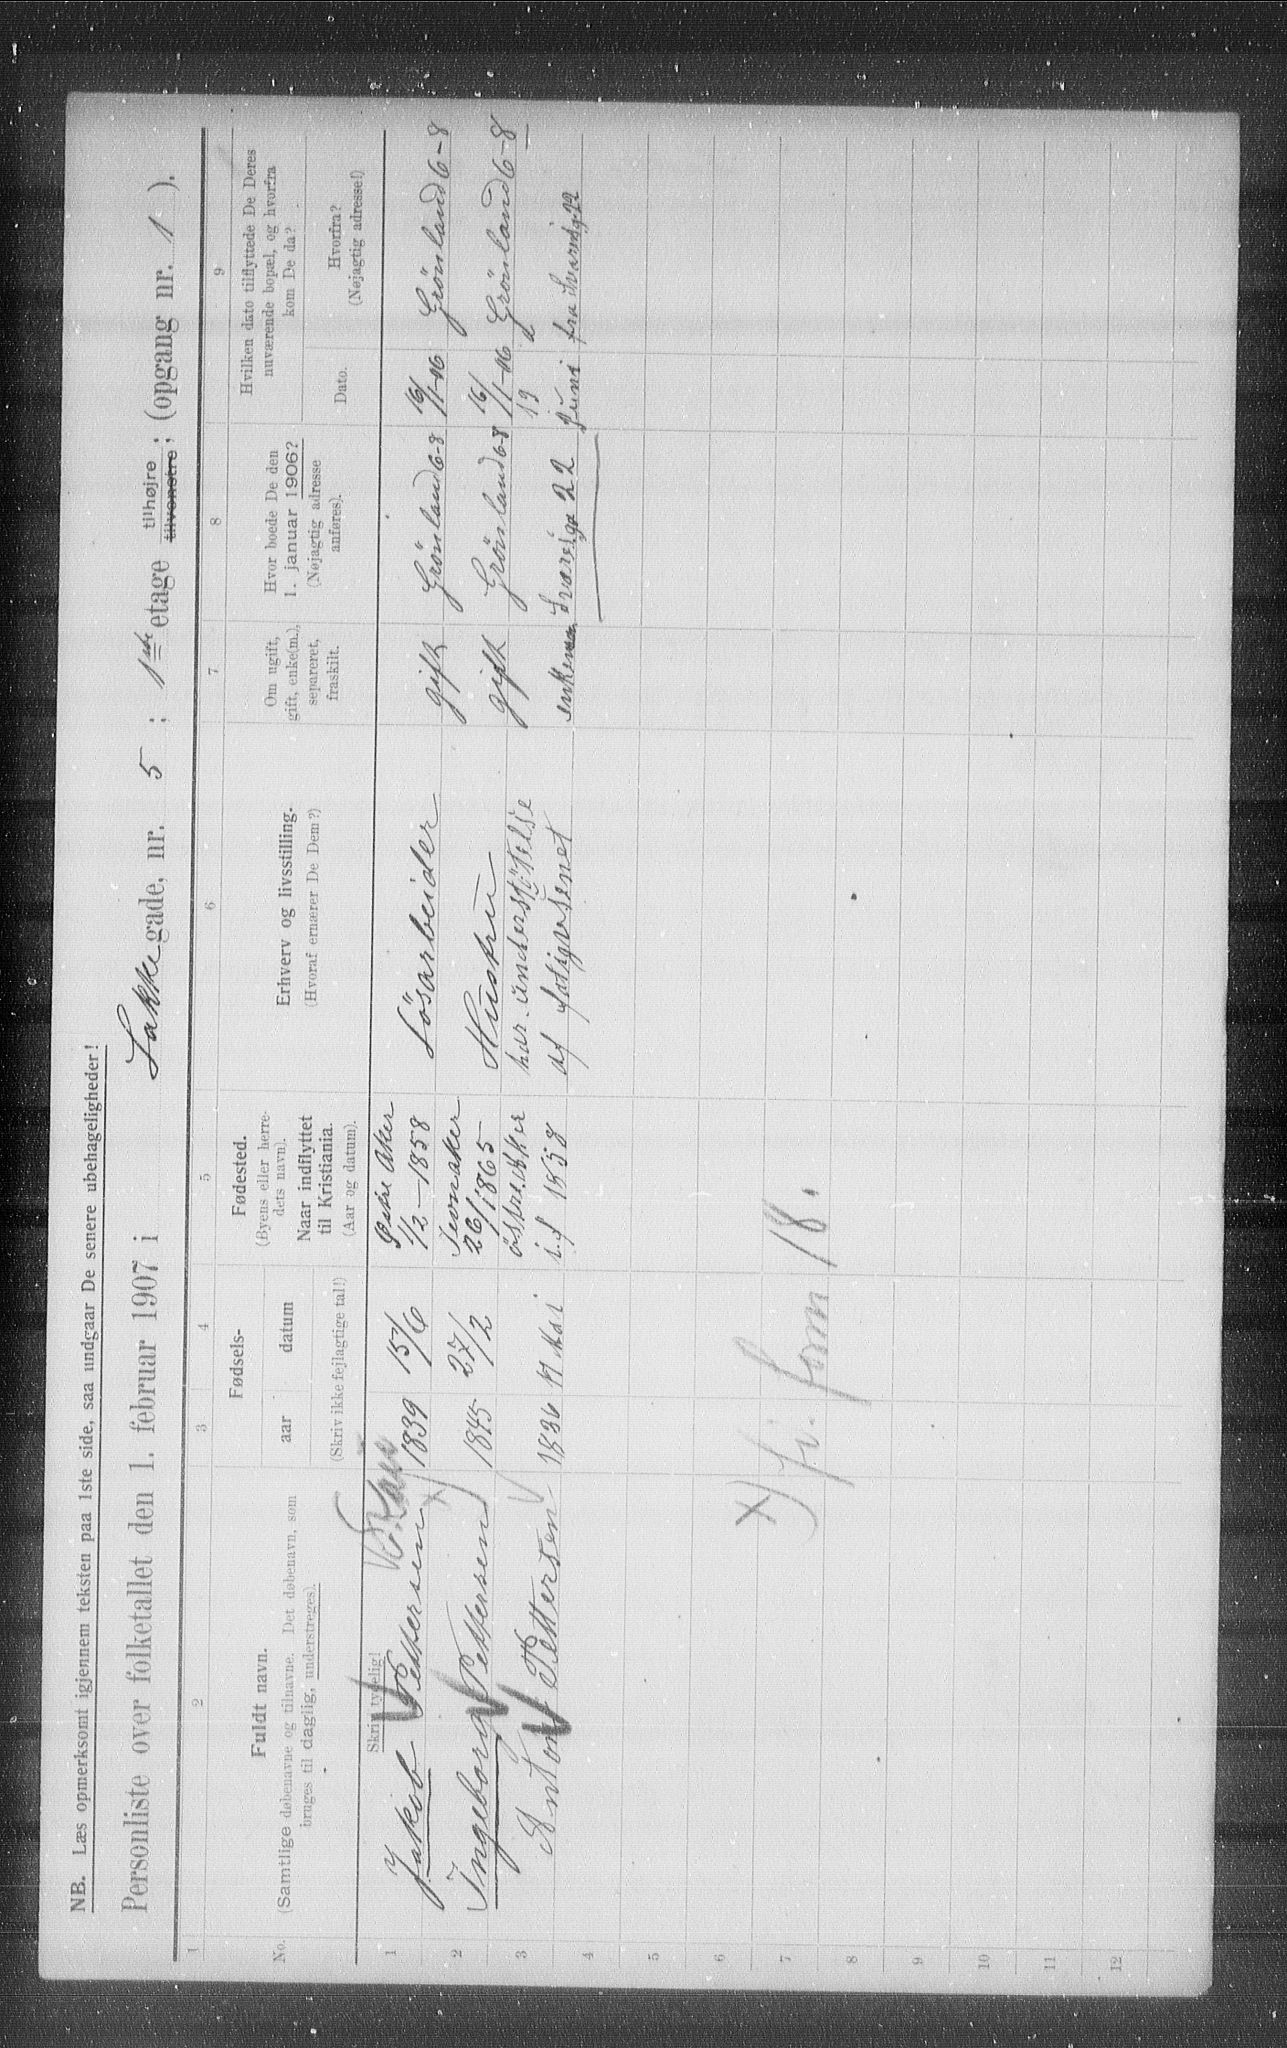 NB. Læs opmerksomt igjennem teksten paa 1ste side, saa undgaar De senere ubehageligheder!
Personliste over folketallet den 1. februar 1907 i Lakkegade, nr. 5 ; 1ste etage tilhøjre tilvenstre ; (opgang nr. 1 ).
1 2 3 4 5 6 7 8 9
No.
Fuldt navn.
(Samtlige døbenavne og tilnavne. Det døbenavn, som
bruges til daglig, understreges).
Skriv tydelig!
Fødsels-
aar datum
(Skriv ikke fejlagtige tal!)
Fødested.
(Byens eller herre-
dets navn).
Naar indflyttet
til Kristiania.
(Aar og datum).
Erhverv og livsstilling.
(Hvoraf ernærer De Dem?)
Om ugift,
gift, enke(m.),
separeret,
fraskilt.
Hvor boede De den
1. januar 1906?
(Nøjagtig adresse
anføres).
Hvilken dato tilflyttede De Deres
nuværende bopæl, og hvorfra
kom De da?
Dato.
Hvorfra?
(Nøjagtig adresse!)
1 Jakob Pettersen 1839 15/6 Østre Aker 1/2-1858 Løsarbeider gift Grønland 6-8 16/1-06 Grønland 6-8
2 Ingeborg Pettersen 1845 27/2 26/1865 Hustru gift Grønland 6-8 16/1-06 Grønland 6-8
3 Anton Pettersen 1836 17 Mai i. f 1858 har understøtelse
af fatigvesenet 22 Juni fra 22
4
5
6
7
8
9
10
11
12
x) fr. form 18.